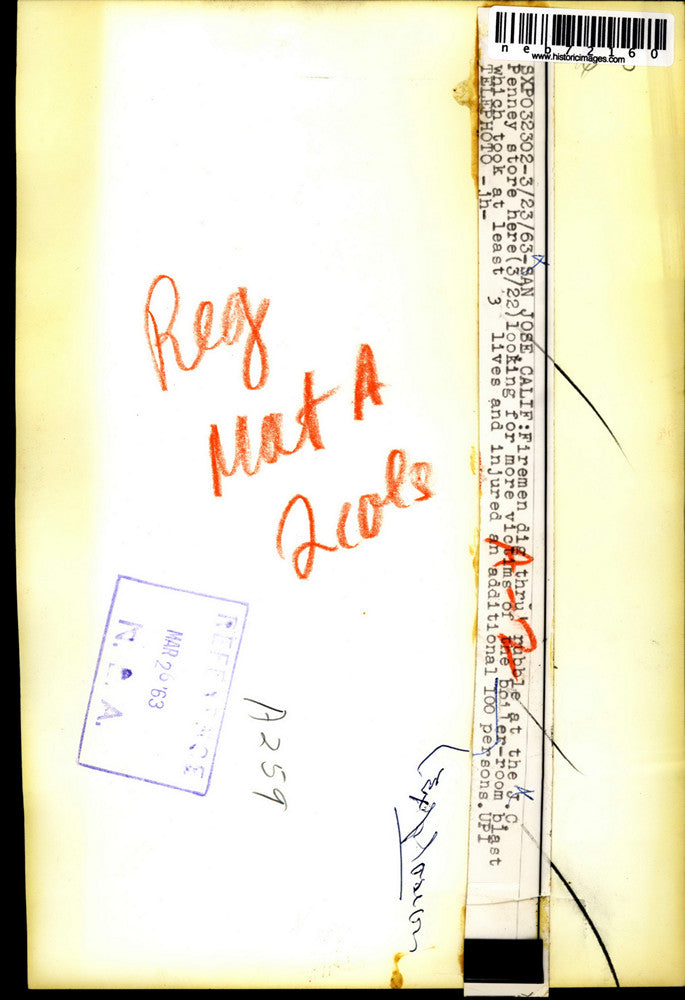 neb72160
www.historicimages.com
SXP032302-3/23/63-SAN JOSE, CALIF:Firemen dig thru rubble at the J.C.
Penney store here(3/22)looking for more victims of the boiler-room blast
which took at least 3 lives and injured an additional 100 persons.UPI
TELEPHOTO -jh-
Reg
Mat A
2 cols
A-7
REFERENCE
MAR 26 '63
A.
A259
Explosion